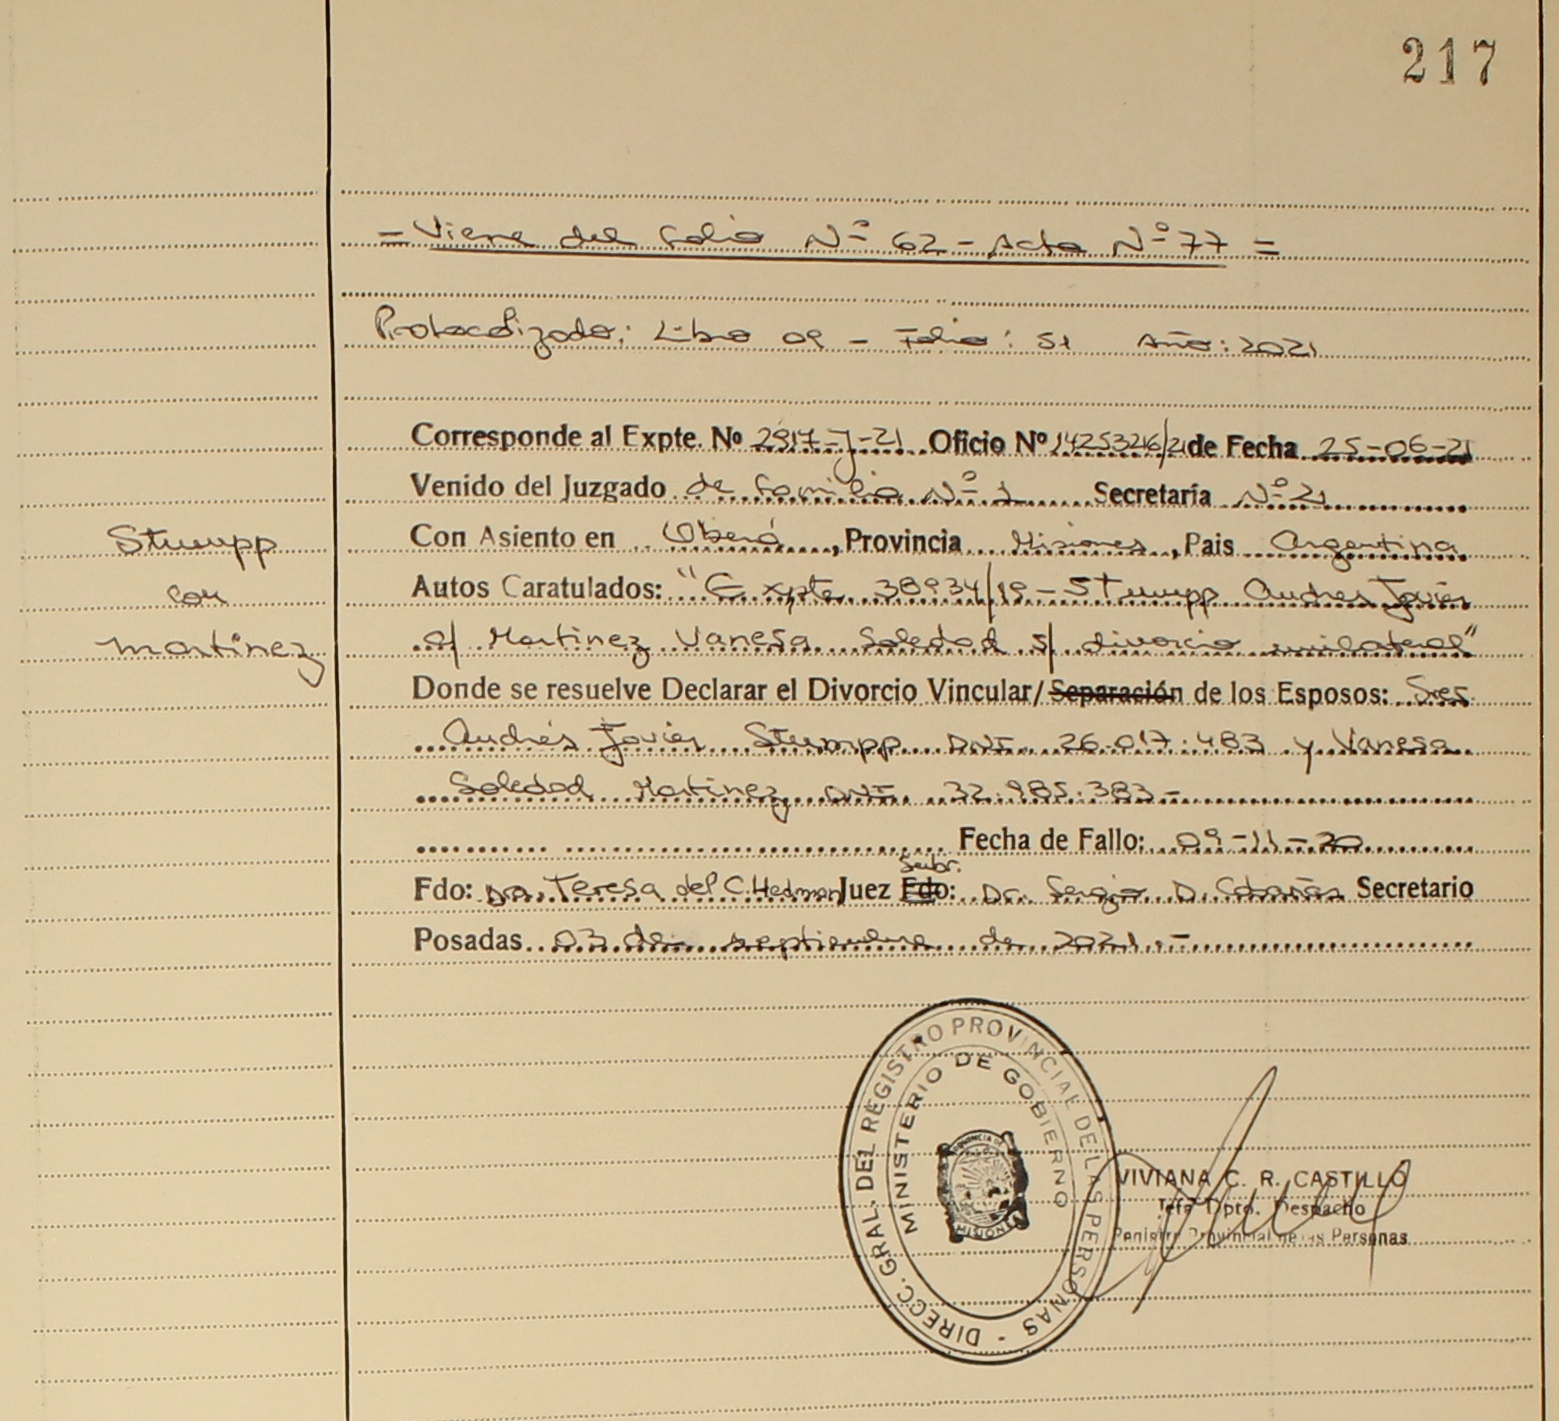 217
= Viene del folio Nº 62 - Acta Nº 77 =
Protocolizado: Libro 09 - Folio: 51 Año: 2021
Corresponde al Expte. Nº 2917-J-21 Oficio Nº 1425326/21 de Fecha 25-06-21
Venido del Juzgado de Familia Nº 1 Secretaría Nº 2
Stumpp
con
martinez
Con Asiento en Oberá, Provincia Misiones, Pais Argentina
Autos Caratulados: "Expte. 38934/19 - Stumpp Andres Javier
c/ Martinez Vanesa Soledad s/ divorcio unilateral"
Donde se resuelve Declarar el Divorcio Vincular/Separación de los Esposos: Sres
Andrés Javier Stumpp DNI. 26.017.483 y Vanesa
Soledad Martinez DNI. 32.985.383-
Fecha de Fallo: 09-11-20
Fdo: Dra. Teresa del C. Hedman Juez Subr. Fdo: Dr. Sergio D. Secretario
Posadas 03 de septiembre de 2021.-
DIRECC. GRAL. DEL REGISTRO PROVINCIAL DE LAS PERSONAS -
MINISTERIO DE GOBIERNO
MISIONES
VIVIANA C. R. CASTILLO
Jefa Dpto. Despacho
Registro Provincial de las Personas